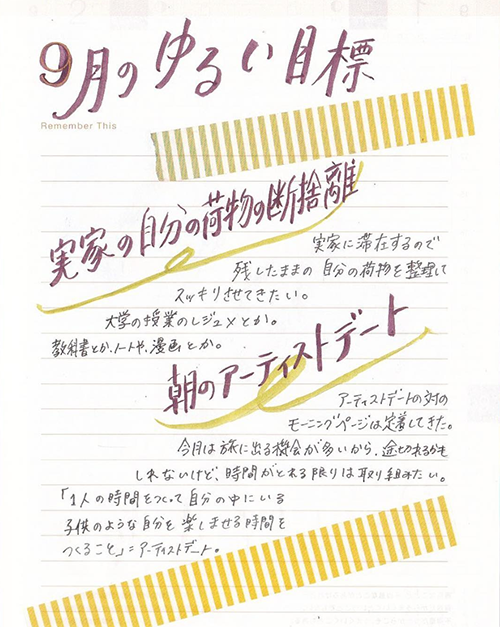 9月のゆるい目標
Remember This
実家の自分の荷物の断捨離
実家に滞在するので
残したままの自分の荷物を整理して
スッキリさせてきたい。
大学の授業のレジュメとか。
教科書とか、ノートや、漫画とか。
朝のアーティストデート
アーティストデートの対の
モーニングページは定着してきた。
今月は旅に出る機会が多いから、途切れるかも
しれないけど、時間がとれる限りは取り組みたい。
「1人の時間をつくって自分の中にいる
子供のような自分を楽しませる時間を
つくること」=アーティストデート。